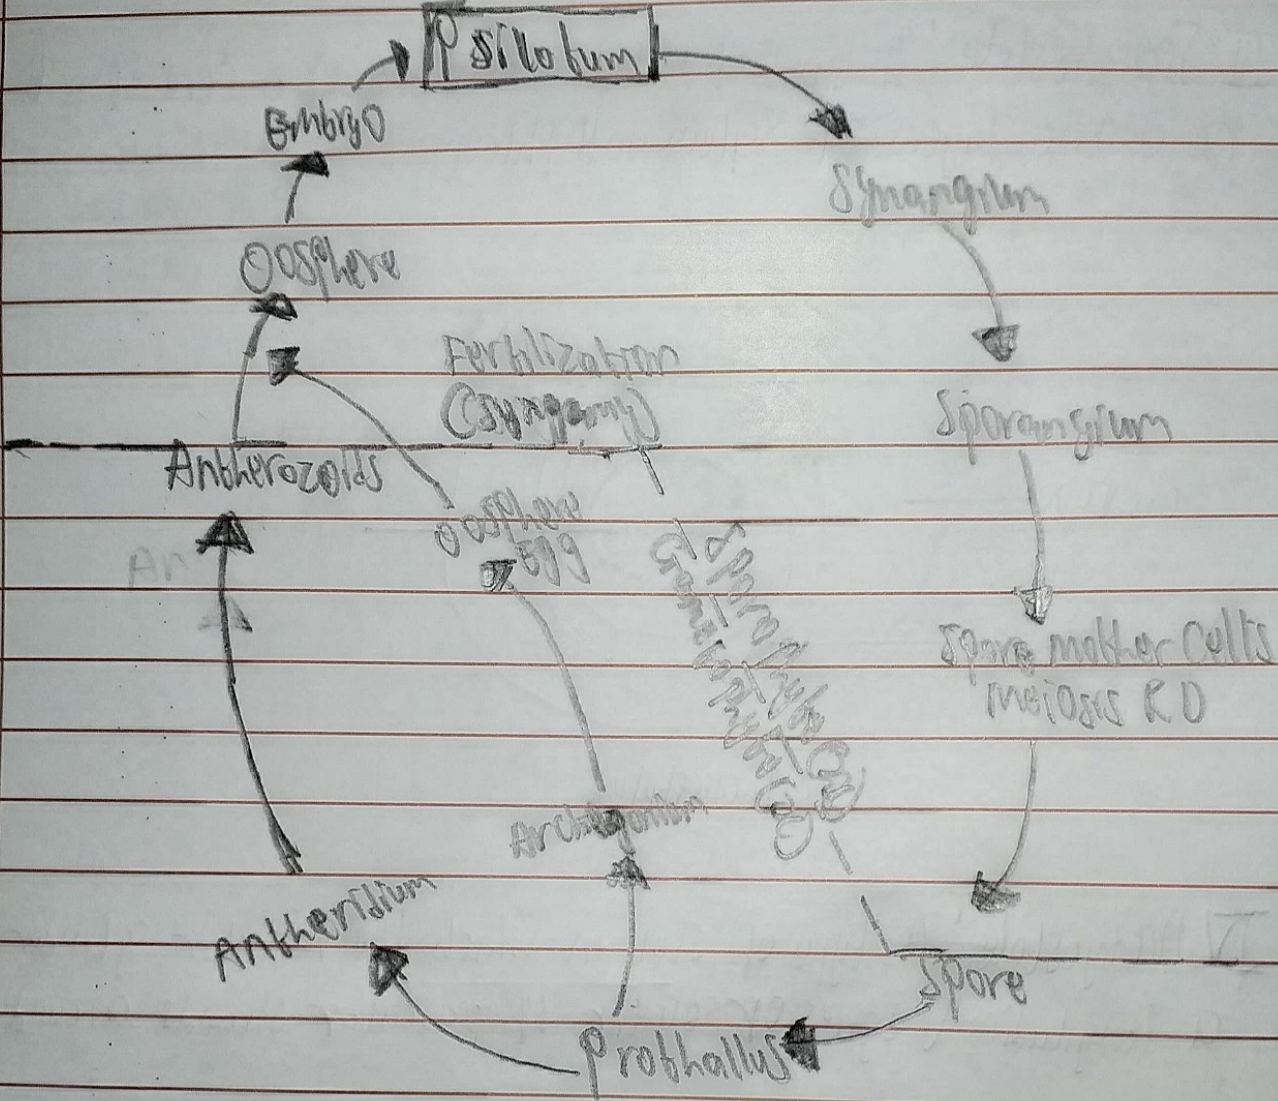 Psilotum
Embryo
Synangium
Oosphere
Fertilization
(Syngamy)
Sporangium
Antherozoids
Oosphere
Egg
An
Spore mother Cells
Meiosis R D
Archegonium
Antheridium
Spore
Prothallus